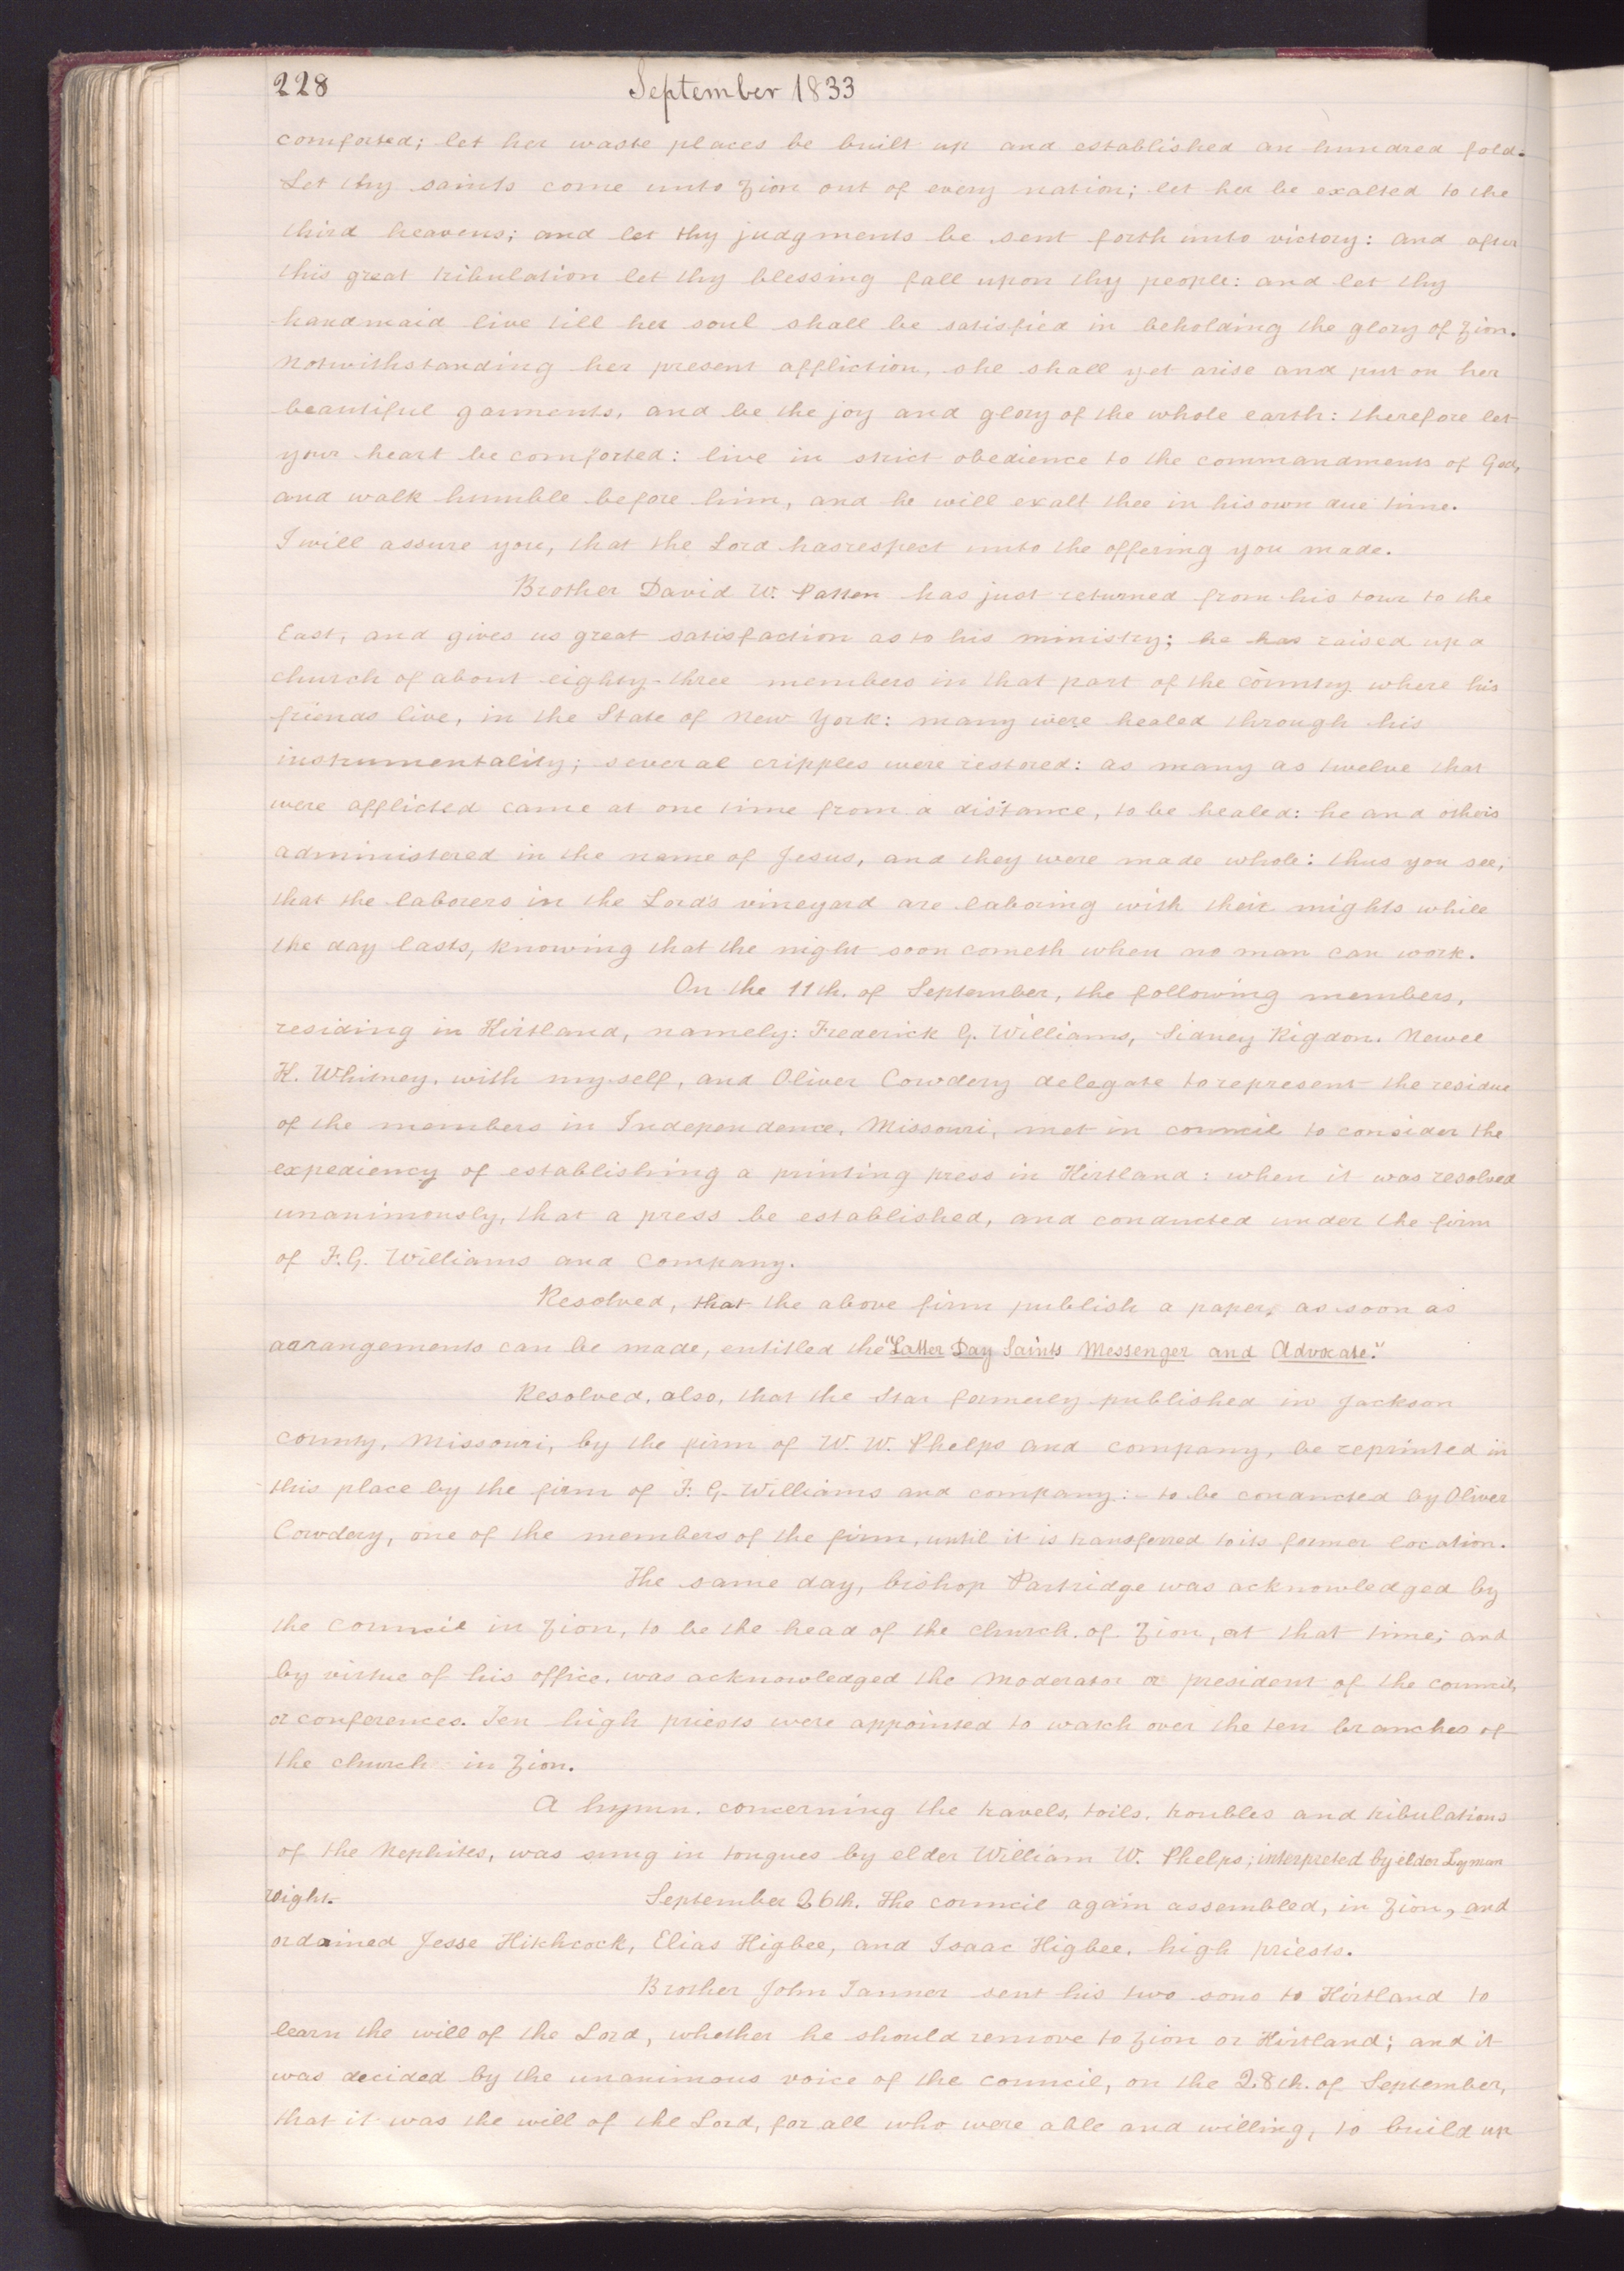 228 September 1833
comforted; let her waste places be built up and established an hundred fold.
Let thy saints come unto Zion out of every nation; let her be exalted to the
third heavens; and let thy judgments be sent forth unto victory: and after
this great tribulation let thy blessing fall upon thy people: and let thy
handmaid live till her soul shall be satisfied in beholding the glory of Zion.
Notwithstanding her present affliction, she shall yet arise and put on her
beautiful garments, and be the joy and glory of the whole earth: therefore let
your heart be comforted: live in strict obedience to the commandments of God,
and walk humble before him, and he will exalt thee in his own due time.
I will assure you, that the Lord has respect unto the offering you made.
Brother David W. Patten has just returned from his tour to the
East, and gives us great satisfaction as to his ministry; he has raised up a
church of about eighty-three members in that part of the country where his
friends live, in the State of New York: many were healed through his
instrumentality; several cripples were restored: as many as twelve that
were afflicted came at one time from a distance, to be healed: he and others
administered in the name of Jesus, and they were made whole: thus you see,
that the laborers in the Lord's vineyard are laboring with their mights while
the day lasts, knowing that the night soon cometh when no man can work.
On the 11th. of September, the following members,
residing in Kirtland, namely: Frederick G. Williams, Sidney Rigdon. Newel
K. Whitney, with myself, and Oliver Cowdery delegate to represent the residue
of the members in Independence, Missouri, met in council to consider the
expediency of establishing a printing press in Kirtland: when it was resolved
unanimously, that a press be established, and conducted under the firm
of F.G. Williams and Company.
Resolved, that the above firm publish a paper, as soon as
aarangements can be made, entitled the "Latter Day Saints Messenger and Advocate."
Resolved, also, that the Star formerly published in Jackson
county, Missouri, by the firm of W. W. Phelps and company, be reprinted in
this place by the firm of F. G. Williams and company:- to be conducted by Oliver
Cowdery, one of the members of the firm, until it is transferred to its former location.
The same day, bishop Partridge was acknowledged by
the council in Zion, to be the head of the church of Zion, at that time; and
by virtue of his office, was acknowledged the moderator or president of the council,
or conferences. Ten high priests were appointed to watch over the ten branches of
the church in Zion.
A hymn, concerning the travels, toils, troubles and tribulations
of the Nephites, was sung in tongues by elder William W. Phelps; interpreted by elder Lyman
Wight. September 26th. The council again assembled, in Zion, and
ordained Jesse Hitchcock, Elias Higbee, and Isaac Higbee, high priests.
Brother John Tanner sent his two sons to Kirtland to
learn the will of the Lord, whether he should remove to Zion or Kirtland; and it
was decided by the unanimous voice of the council, on the 28th. of September,
that it was the will of the Lord, for all who were able and willing, to build up